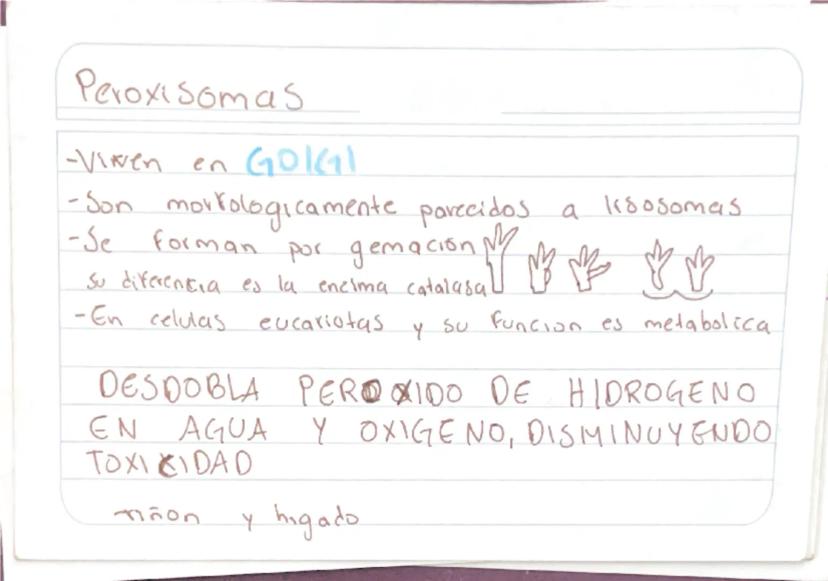 Peroxisomas
-Vinen en GOlGI
-Son morfologicamente parecidos a lisosomas
-Se forman por gemación
su diferencia es la encima catalasa
-En celulas eucariotas y su funcion es metabolica
DESDOBLA PEROXIDO DE HIDROGENO
EN AGUA Y OXIGENO, DISMINUYENDO
TOXICIDAD
riñon y higado